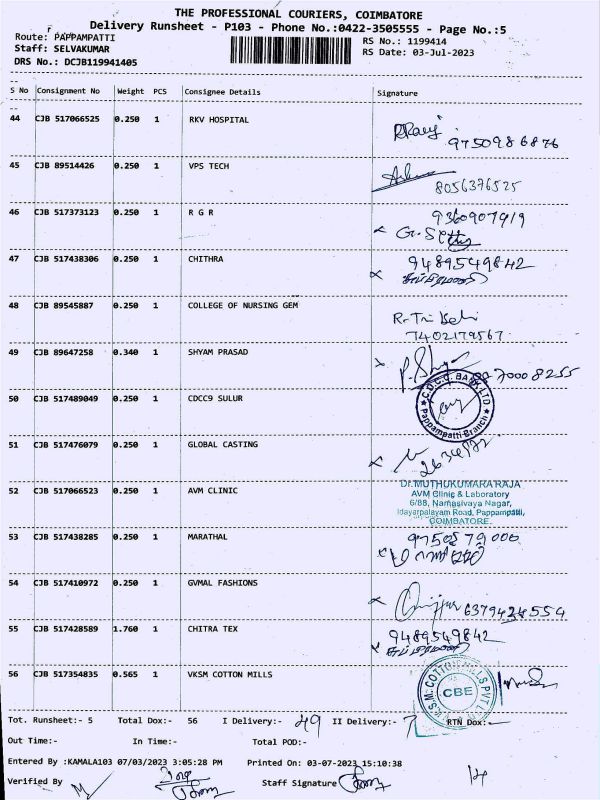 THE PROFESSIONAL COURIERS, COIMBATORE
Delivery Runsheet - P103 - Phone No.:0422-3505555 - Page No.:5
Route: PAPPAMPATTI
RS No.: 1199414
Staff: SELVAKUMAR
RS Date: 03-Jul-2023
DRS No.: DCJB119941405
S No Consignment No Weight PCS Consignee Details Signature
44 CJB 517066525 0.250 1 RKV HOSPITAL
9750986876
45 CJB 89514426 0.250 1 VPS TECH
8056376525
46 CJB 517373123 0.250 1 R G R
9360907919
47 CJB 517438306 0.250 1 CHITHRA
9489549842
48 CJB 89545887 0.250 1 COLLEGE OF NURSING GEM
7402179567
49 CJB 89647258 0.340 1 SHYAM PRASAD
50 CJB 517489049 0.250 1 CDCC9 SULUR
C.D.C.C. BANK LTD
Pappampatti-Branch
51 CJB 517476079 0.250 1 GLOBAL CASTING
52 CJB 517066523 0.250 1 AVM CLINIC
Dr.MUTHUKUMARA RAJA
AVM Clinic & Laboratory
6/88, Namasivaya Nagar,
Idayarpalayam Road, Pappampatti,
COIMBATORE.
53 CJB 517438285 0.250 1 MARATHAL
54 CJB 517410972 0.250 1 GVMAL FASHIONS
55 CJB 517428589 1.760 1 CHITRA TEX
9489549842
56 CJB 517354835 0.565 1 VKSM COTTON MILLS
V.K.S.M. COTTON MILLS PVT LTD
CBE
Tot. Runsheet:- 5 Total Dox:- 56 I Delivery:- 49 II Delivery:- 7 RTN Dox:-
Out Time:- In Time:- Total POD:-
Entered By :KAMALA103 07/03/2023 3:05:28 PM Printed On: 03-07-2023 15:10:38
Verified By Staff Signature